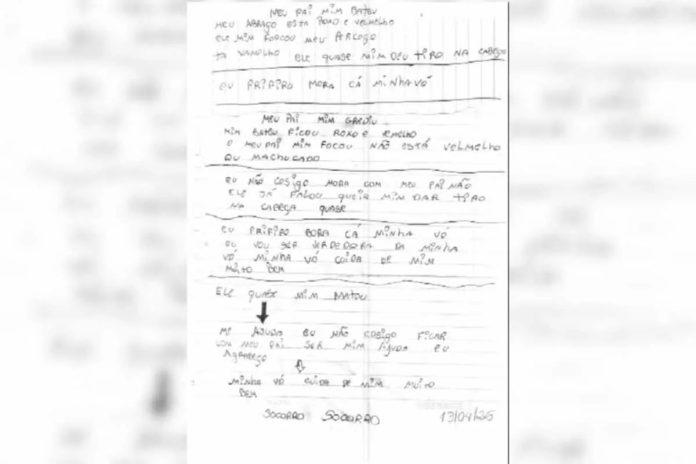 MEU PAI MIM BATEU
MEU ABRAÇO ESTA ROXO E VERMELHO
ELE MIM FORCOU MEU PERCOÇO
TA VAMELHO ELE QUASE MIM DEU TIRO NA CABEÇA
EU PRIFIRO MORA CÁ MINHA VÓ
MEU PAI MIM
MIM BATEU FICOU ROXO E
O MEU PAI MIM FOCOU NÃO ESTÁ VELMELHO
OU MACHUCADO
EU NÃO COSIGO MORA COM MEU PAI NÃO
ELE JÁ FALOU QUERIA MIM DAR TIRO
NA CABEÇA QUASE
EU PRIFIRO BORA CÁ MINHA VÓ
EU VOU SER DA MINHA
VÓ MINHA VÓ CUIDA DE MIM
MUITO BEM
ELE QUASE MIM MATOU
ME AJUDA EU NÃO COSIGO FICAR
COM MEU PAI SER MIM AJUDA EU
MINHA VÓ CUIDA DE MIM MUITO
BEM
SOCORRO SOCORRO 13/04/25